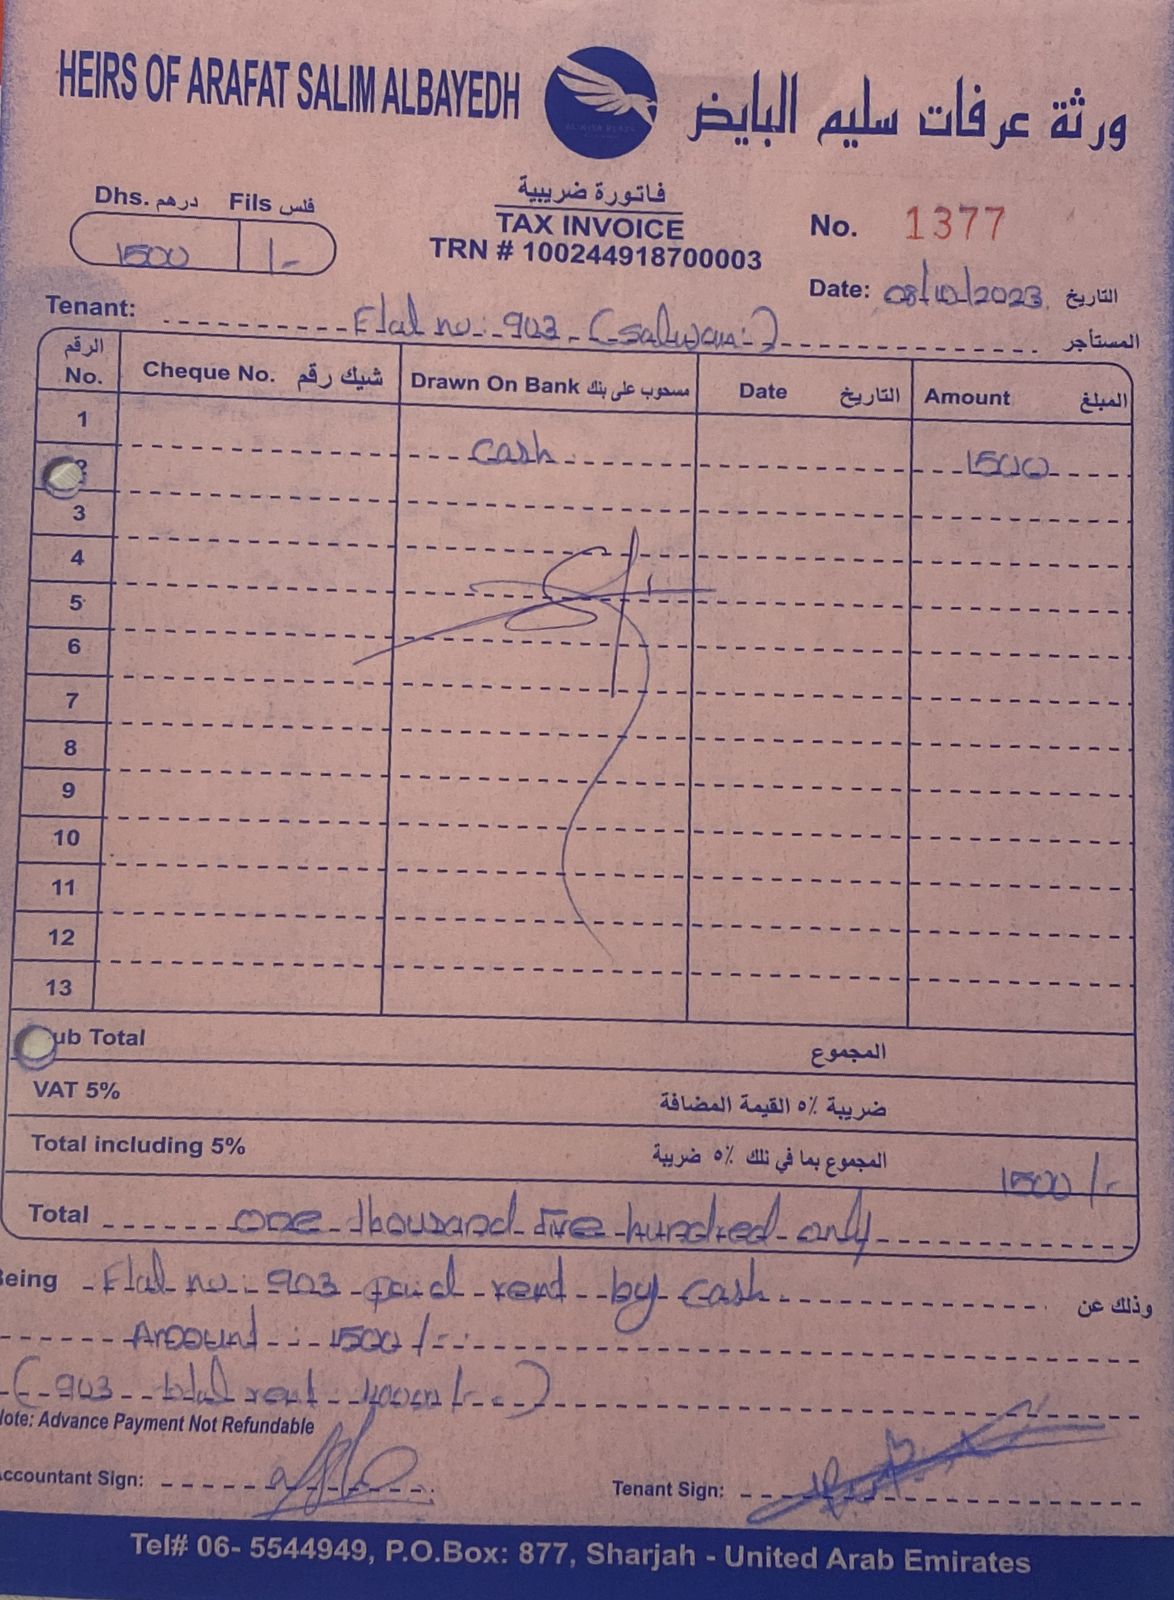 HEIRS OF ARAFAT SALIM ALBAYEDH
ورثة عرفات سليم البايض
Dhs. درهم Fils فلس
1500 /-
فاتورة ضريبية
TAX INVOICE
TRN # 100244918700003
No. 1377
Date: 08/10/2023 التاريخ
Tenant: Flat no: 903 (Salwan) المستأجر
الرقم No. Cheque No. شيك رقم Drawn On Bank مسحوب على بنك Date التاريخ Amount المبلغ
1 cash 1500
2
3
4
5
6
7
8
9
10
11
12
13
ub Total المجموع
VAT 5% ضريبة ٥٪ القيمة المضافة
Total including 5% المجموع بما في تلك ٥٪ ضريبة 1500/-
Total one thousand five hundred only
Being Flat no: 903 paid rent by cash وذلك عن
Amount: 1500/-
(903 total rent
Note: Advance Payment Not Refundable
Accountant Sign: Tenant Sign:
Tel# 06- 5544949, P.O.Box: 877, Sharjah - United Arab Emirates